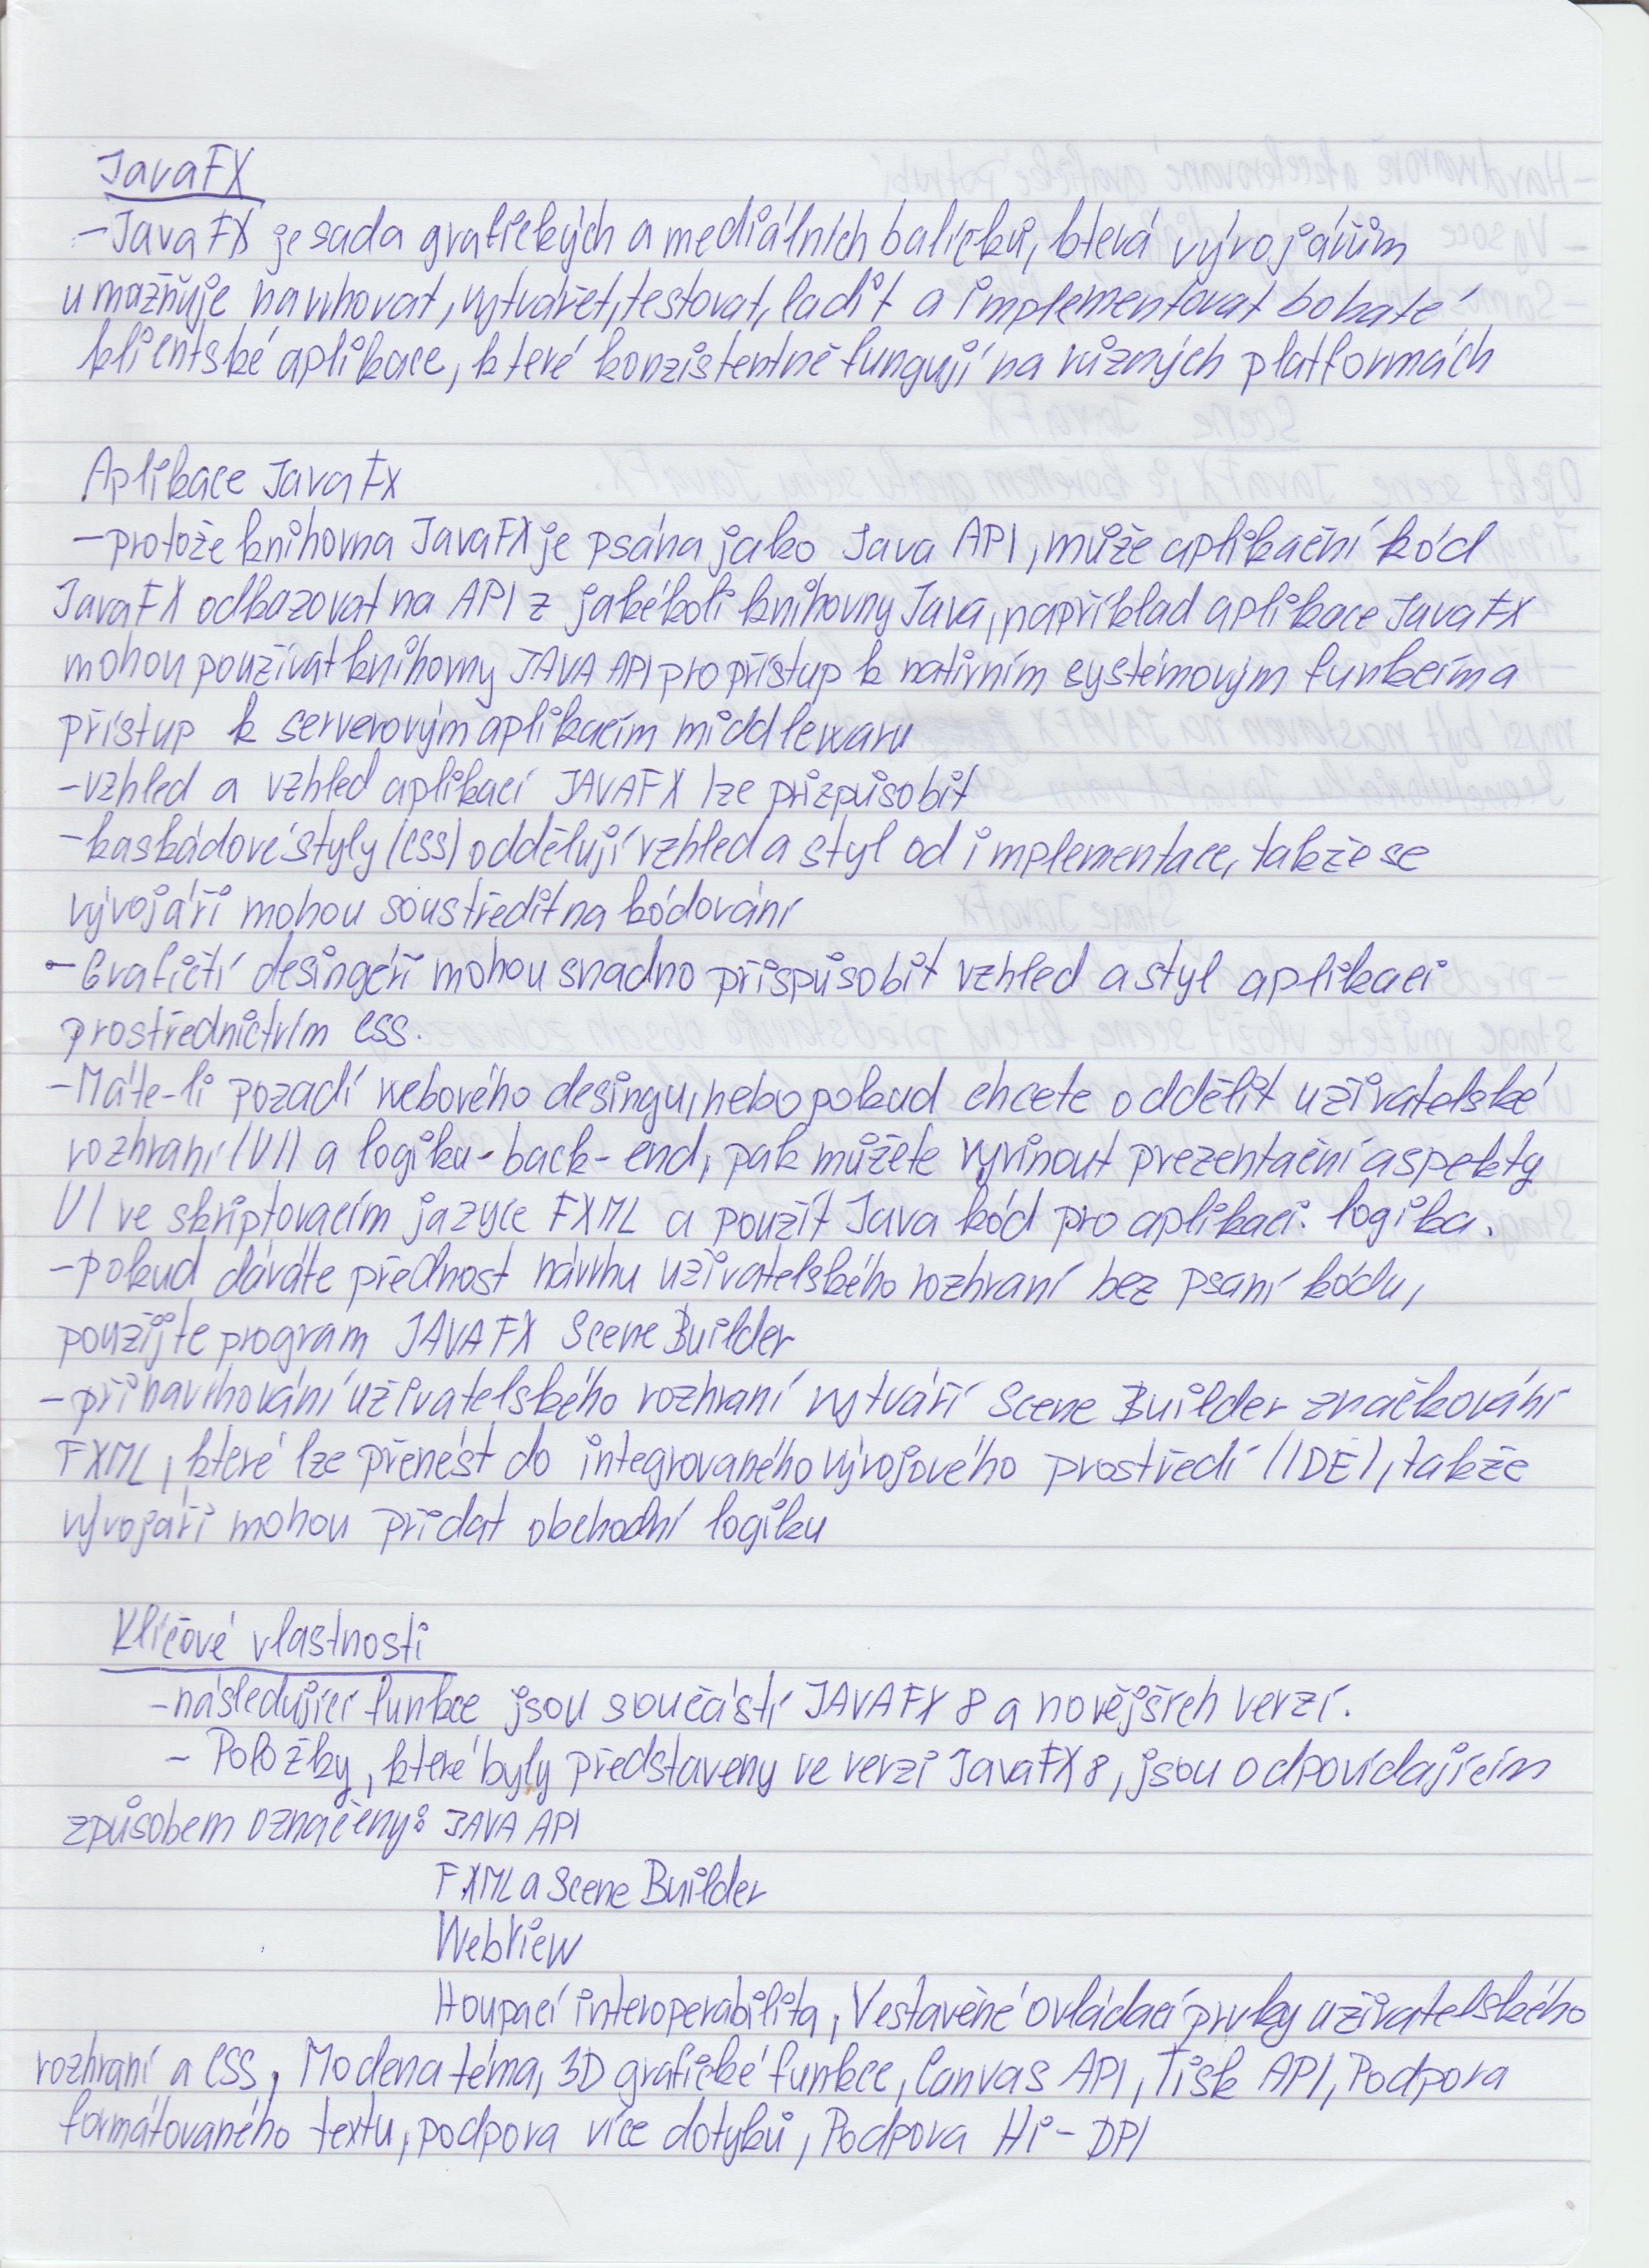 JavaFX
- Java FX je sada grafických a mediálních balíčků, která vývojářům
umožňuje navrhovat, vytvářet, testovat, ladit a implementovat bohaté
klientské aplikace, které konzistentně fungují na různých platformách
Aplikace JavaFx
- protože knihovna JavaFX je psána jako Java API, může aplikační kód
JavaFX odkazovat na API z jakékoli knihovny Java, například aplikace JavaFX
mohou používat knihovny JAVA API pro přístup k nativním systémovým funkcím a
přístup k serverovým aplikacím middlewaru
- vzhled a vzhled aplikací JAVAFX lze přizpůsobit
- kaskádové styly (CSS) oddělují vzhled a styl od implementace, takže se
vývojáři mohou soustředit na kódování
- Grafičtí desingéři mohou snadno přispůsobit vzhled a styl aplikaci
prostřednictvím CSS.
- Máte-li pozadí webového desingu, nebo pokud chcete oddělit uživatelské
rozhraní (UI) a logiku - back-end, pak můžete vyvinout prezentační aspekty
UI ve skriptovacím jazyce FXML a použít Java kód pro aplikaci. logika.
- pokud dáváte přednost návrhu uživatelského rozhraní bez psaní kódu,
použijte program JAVAFX Scene Builder
- při navrhování uživatelského rozhraní vytváří Scene Builder značkování
FXML, které lze přenést do integrovaného vývojového prostředí (IDE), takže
vývojáři mohou přidat obchodní logiku
Klíčové vlastnosti
- následující funkce jsou součástí JAVAFX 8 a novějších verzí.
- Položky, které byly představeny ve verzi JavaFX 8, jsou odpovídajícím
způsobem označeny: JAVA API
FXML a Scene Builder
WebView
Houpací interoperabilita, Vestavěné ovládací prvky uživatelského
rozhraní a CSS, Modena téma, 3D grafické funkce, Canvas API, Tisk API, Podpora
formátovaného textu, podpora více dotyků, Podpora Hi-DPI